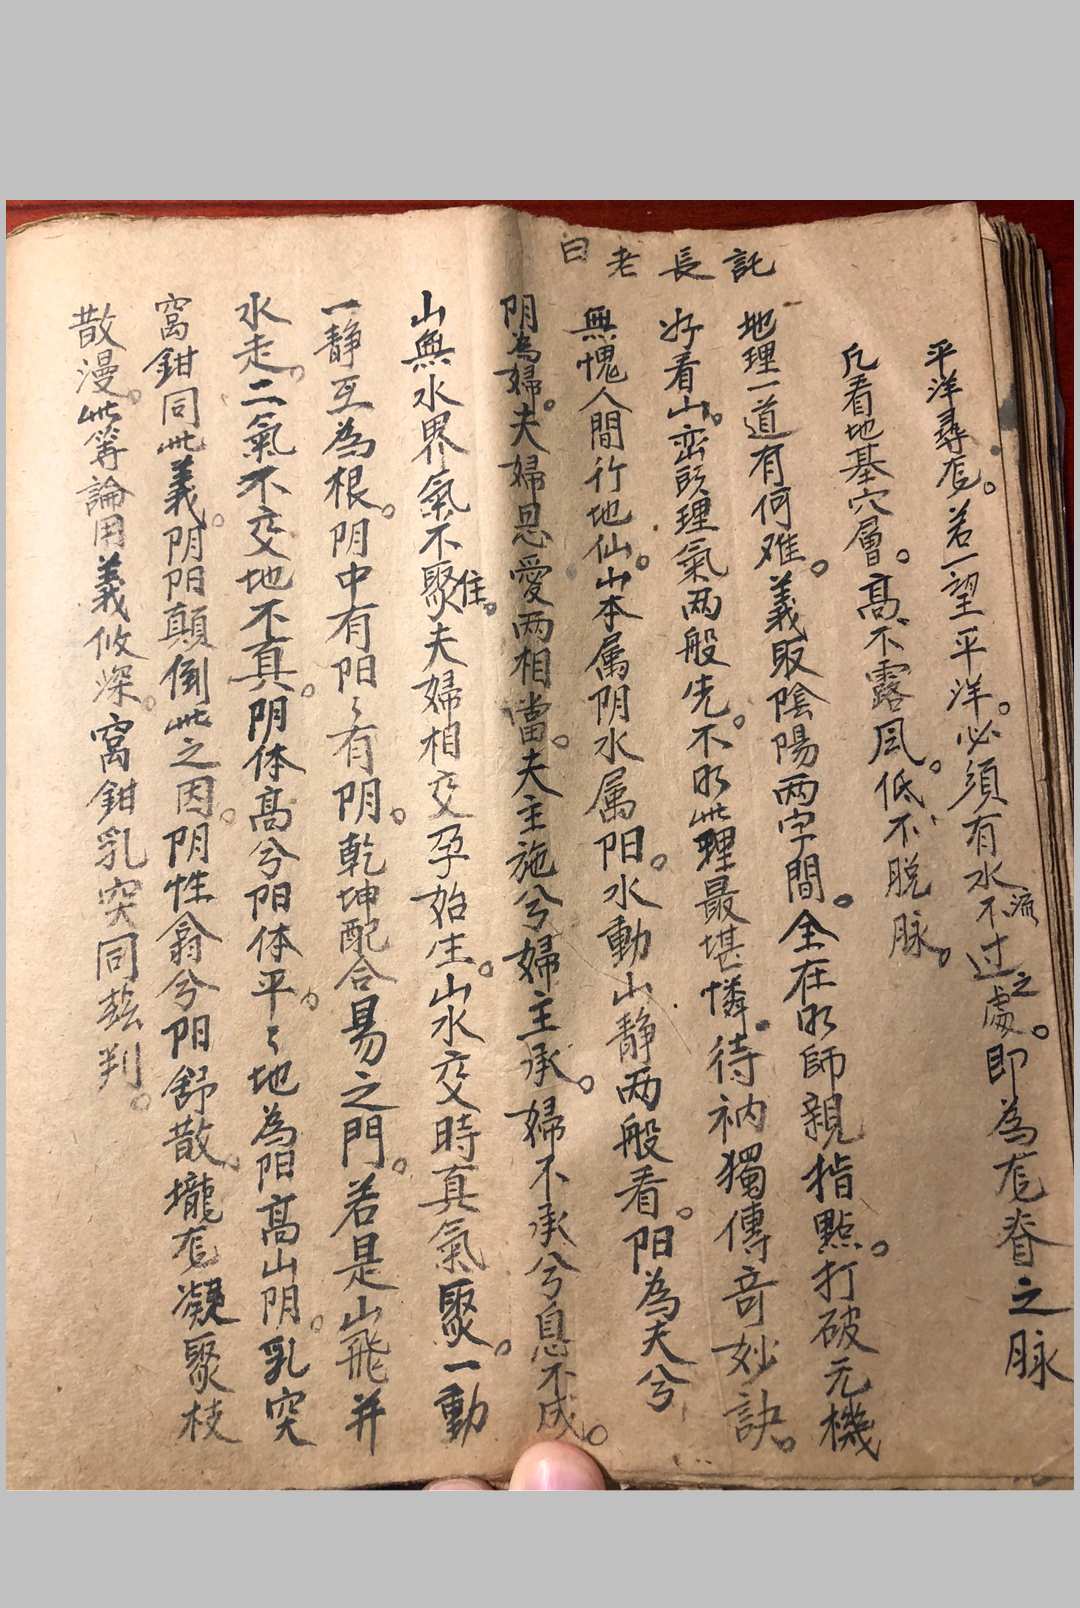 平洋尋竜。若一望平洋。必須有水流不过之處。即為竜脊之脉
凡看地基穴層。高不露風。低不脱脉。
託長老曰
地理一道有何难。義取陰陽两字間。全在明師親指點。打破元機
好看山。峦頭理氣两般先。不明此理最堪憐。待衲獨傳奇妙訣。
無愧人間行地仙。山本属阴水属阳。水動山静两般看。阳為夫兮
阴為婦。夫婦恩愛两相當。夫主施兮婦主承。婦不承兮息不成。
山無水界氣不聚住。夫婦相交孕始生。山水交時真氣聚。一動
一静互為根。阴中有阳〻有阴。乾坤配合易之門。若是山飛并
水走。二氣不交地不真。阴体高兮阳体平。〻地為阳高山阴。乳突
窩鉗同此義。阴阳顛倒此之因。阴性翕兮阳舒散。壠竜凝聚枝
散漫。此等論用義攸深。窩鉗乳突同兹判。